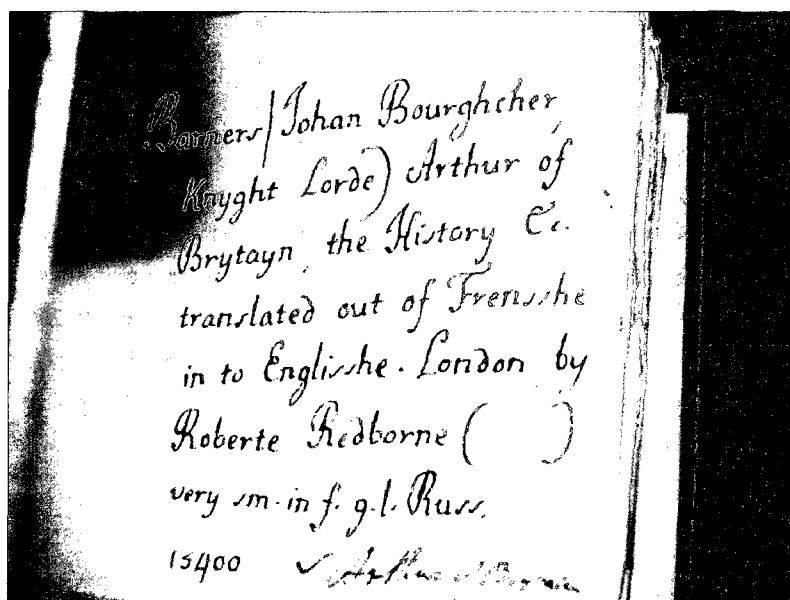 Barners/Johan Bourghcher,
Knyght Lorde) Arthur of
Brytayn the History &c.
translated out of Frensshe
in to Englisshe. London by
Roberte Redborne ( )
very sm. in f. g.l. Russ.
15400 ✓ Arthur of Brytain